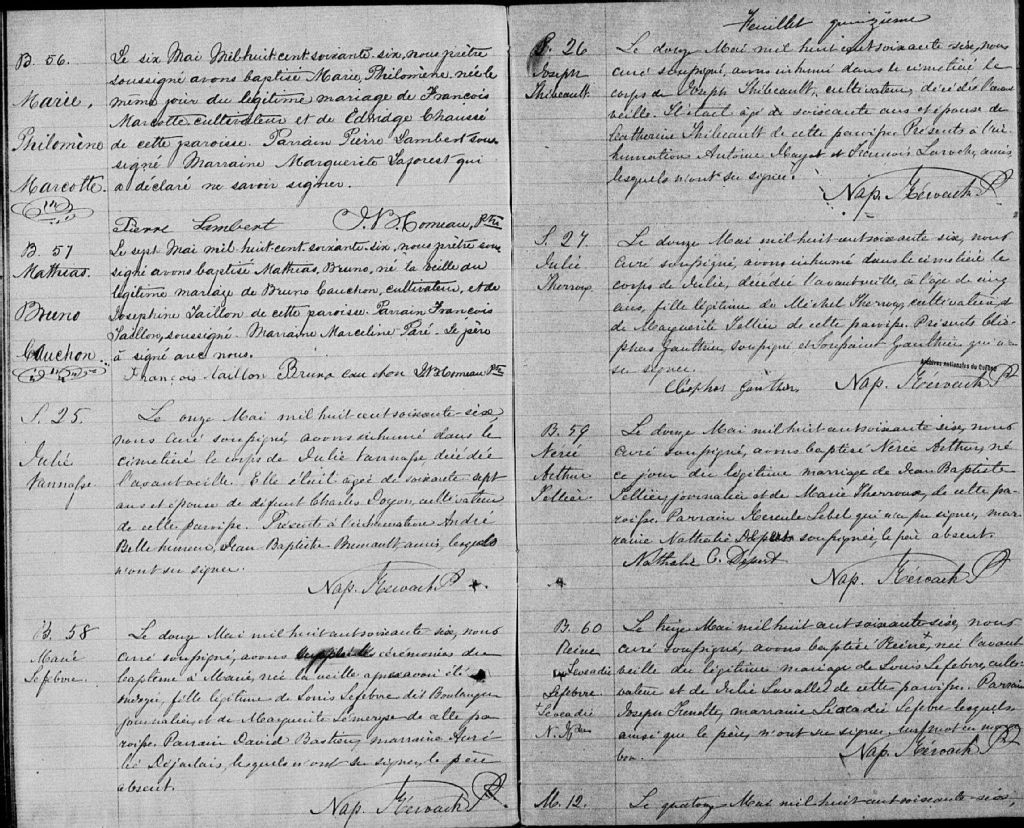 B. 56.
Marie,
Philomène
Marcotte.
Le six Mai Mil huit cent soixante-six, nous prêtre
soussigné avons baptisé Marie, Philomène, née le
même jour du légitime mariage de François
Marcotte cultivateur et de Edwidge Chaussé
de cette paroisse. Parrain Pierre Lambert sous-
signé Marraine Marguerite Laforest qui
a déclaré ne savoir signer.
Pierre Lambert J.B. Comeau, Ptre
B. 57
Mathias.
Bruno
Cauchon.
Le sept Mai mil huit cent soixante-six, nous prêtre sous-
signé avons baptisé Mathias, Bruno, né la veille du
légitime mariage de Bruno Cauchon, cultivateur, et de
Josephine Taillon de cette paroisse. Parrain François
Taillon, soussigné. Marraine Marceline Paré. Le père
a signé avec nous.
François Taillon Bruno Cauchon J.B. Comeau Ptre
S. 25.
Julie
Vannasse
Le onze Mai mil huit cent soixante-six
nous curé soussigné, avons inhumé dans le
cimetière le corps de Julie Vannasse décédée
l'avant veille. Elle était agée de soixante-sept
ans et épouse de défunt Charles Doyon, cultivateur
de cette paroisse. Présents à l'inhumation André
Bellehumeur, Jean-Baptiste amis, lesquels
n'ont su signer.
Nap. Kérvach P
B. 58
Marie
Lefebvre.
Le douze Mai mil huit cent soixante six, nous
curé soussigné, avons suppléé les cérémonies du
baptême à Marie, née la veille après avoir été
fille légitime de Louis Lefebvre dit Boulanger
journalier, et de Marguerite de cette pa-
roisse. Parrain David Bastien, marraine Auré-
lie Dejarlais, lesquels n'ont su signer, le père
absent.
Nap. Kérvach P
Feuillet quinzième
S. 26
Joseph
Thibeault.
Le douze Mai mil huit cent soixante-six, nous
curé soussigné, avons inhumé dans le cimetière le
corps de Joseph Thibeault, cultivateur, décédé l'avant
veille. Il était agé de soixante ans et époux de
Catherine Thibeault de cette paroisse. Présents à l'in-
humation Antoine et François Laroche, amis,
lesquels n'ont su signer.
Nap. Kérvach P
S. 27
Julie
Therroux
Le douze Mai mil huit cent soixante-six, nous
curé soussigné, avons inhumé dans le cimetière le
corps de Julie, décédée l'avant veille, à l'age de cinq
ans, fille légitime de Michel Therroux, cultivateur, et
de Marguerite Pellier de cette paroisse. Présents Cléo-
phas Gauthier, soussigné et Gauthier qui n'a
su signer.
Archives nationales du Québec
Cleophas Gauthier Nap. Kérvach P
B. 59
Nerée
Arthur
Pellier
Le douze Mai mil huit cent soixante six, nous
curé soussigné, avons baptisé Nerée Arthur, né
ce jour du légitime mariage de Jean Baptiste
Pellier, journalier et de Marie Therroux, de cette pa-
roisse. Parrain Hercule Lebel qui n'a pu signer, mar-
raine Nathalie soussignée, le père absent.
Nathalie C.
Nap. Kérvach P
B. 60
Reine
Léocadie
Lefebvre
+ Léocadie
N. K ptre
Le treize Mai mil huit cent soixante six, nous
curé soussigné, avons baptisé Reine +, née l'avant
veille du légitime mariage de Louis Lefebvre, culti-
vateur et de Julie Lavallée de cette paroisse. Parrain
Joseph Frenette, marraine Léocadie Lefebvre lesquels
ainsi que le père, n'ont su signer. un mot en marge
bon.
Nap. Kérvach P
M. 12.
Le quatorze Mai mil huit cent soixante-six,